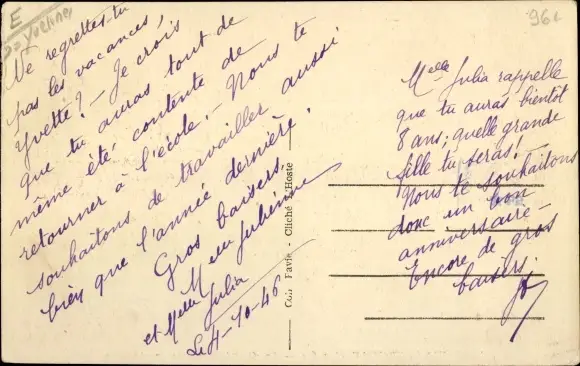 E
Yvelines
961
Ne regrettes-tu
pas les vacances,
Yvette? - Je crois
que tu auras tout de
même été contente de
retourner à l'école. - Nous te
souhaitons de travailler aussi
bien que l'année dernière.
Gros baisers.
Melle Julienne
et Melle Julia
Le 4-10-46
Coll Favie - Cliché L'Hoste
Melle Julia rappelle
que tu auras bientôt
8 ans; quelle grande
fille tu seras!
Nous te souhaitons
donc un bon
anniversaire -
Encore de gros
baisers.